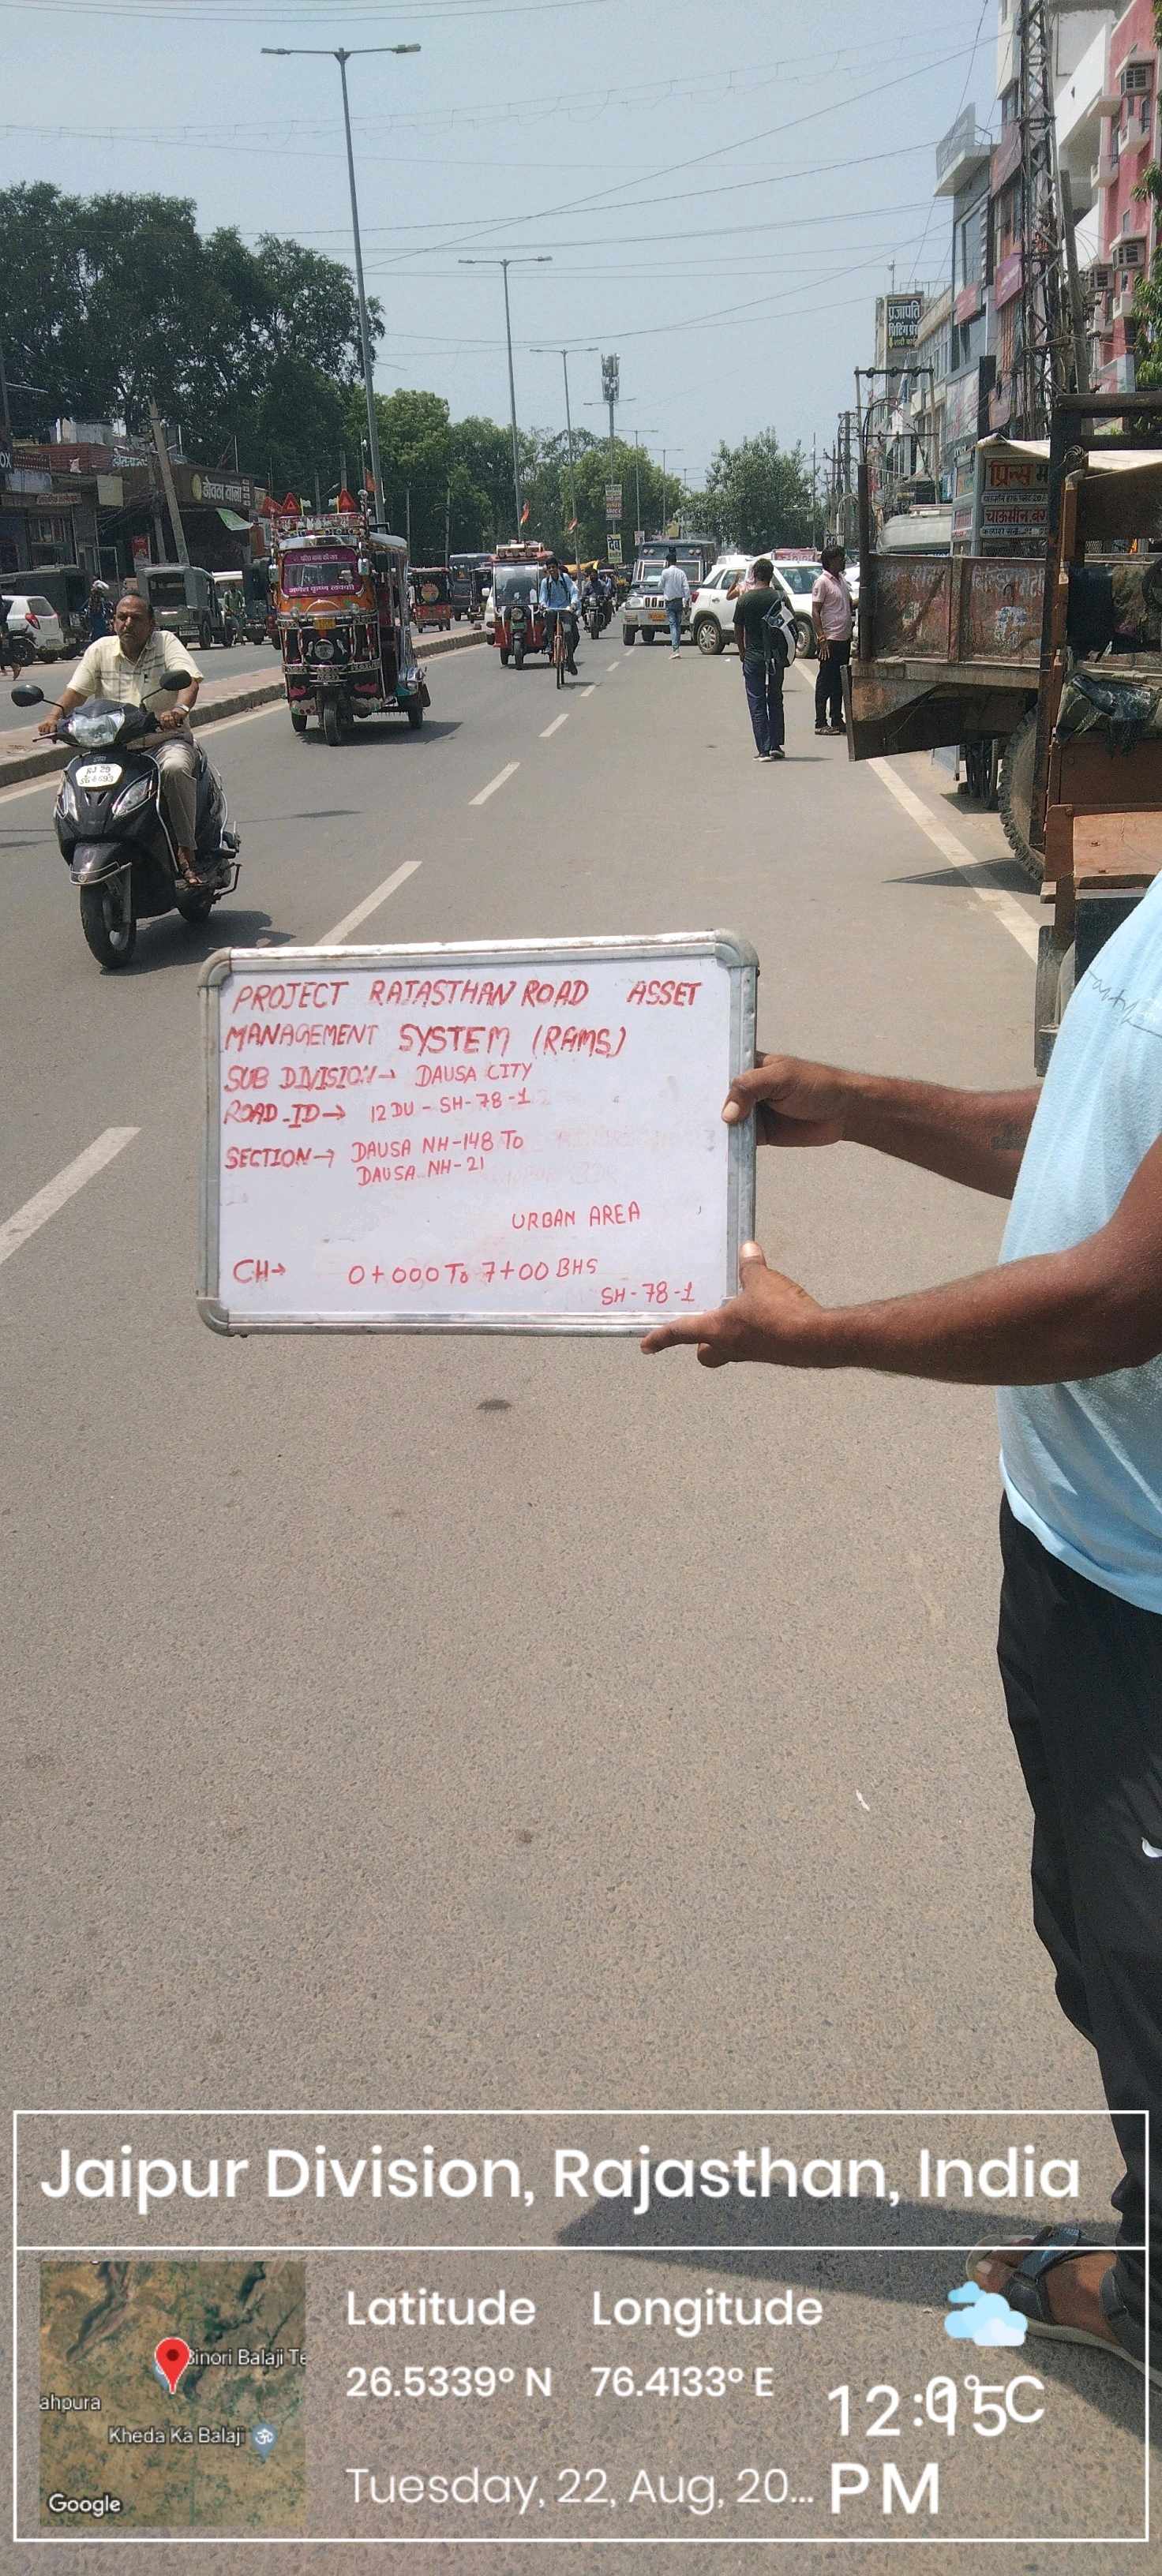 प्रजापति
प्रिंटिंग प्रेस
जेवन वाला
प्रिन्स
चाऊमीन, बर्गर
PROJECT RAJASTHAN ROAD ASSET
MANAGEMENT SYSTEM (RAMS)
SUB DIVISION→ DAUSA CITY
ROAD-ID→ 12DU-SH-78-1
SECTION→ DAUSA NH-148 To
DAUSA NH-21
URBAN AREA
CH→ 0+000 To 7+00 BHS
SH-78-1
Jaipur Division, Rajasthan, India
Latitude Longitude
26.5339° N 76.4133° E
Tuesday, 22, Aug, 20...
PM
Binori Balaji Te
ahpura
Kheda Ka Balaji
Google